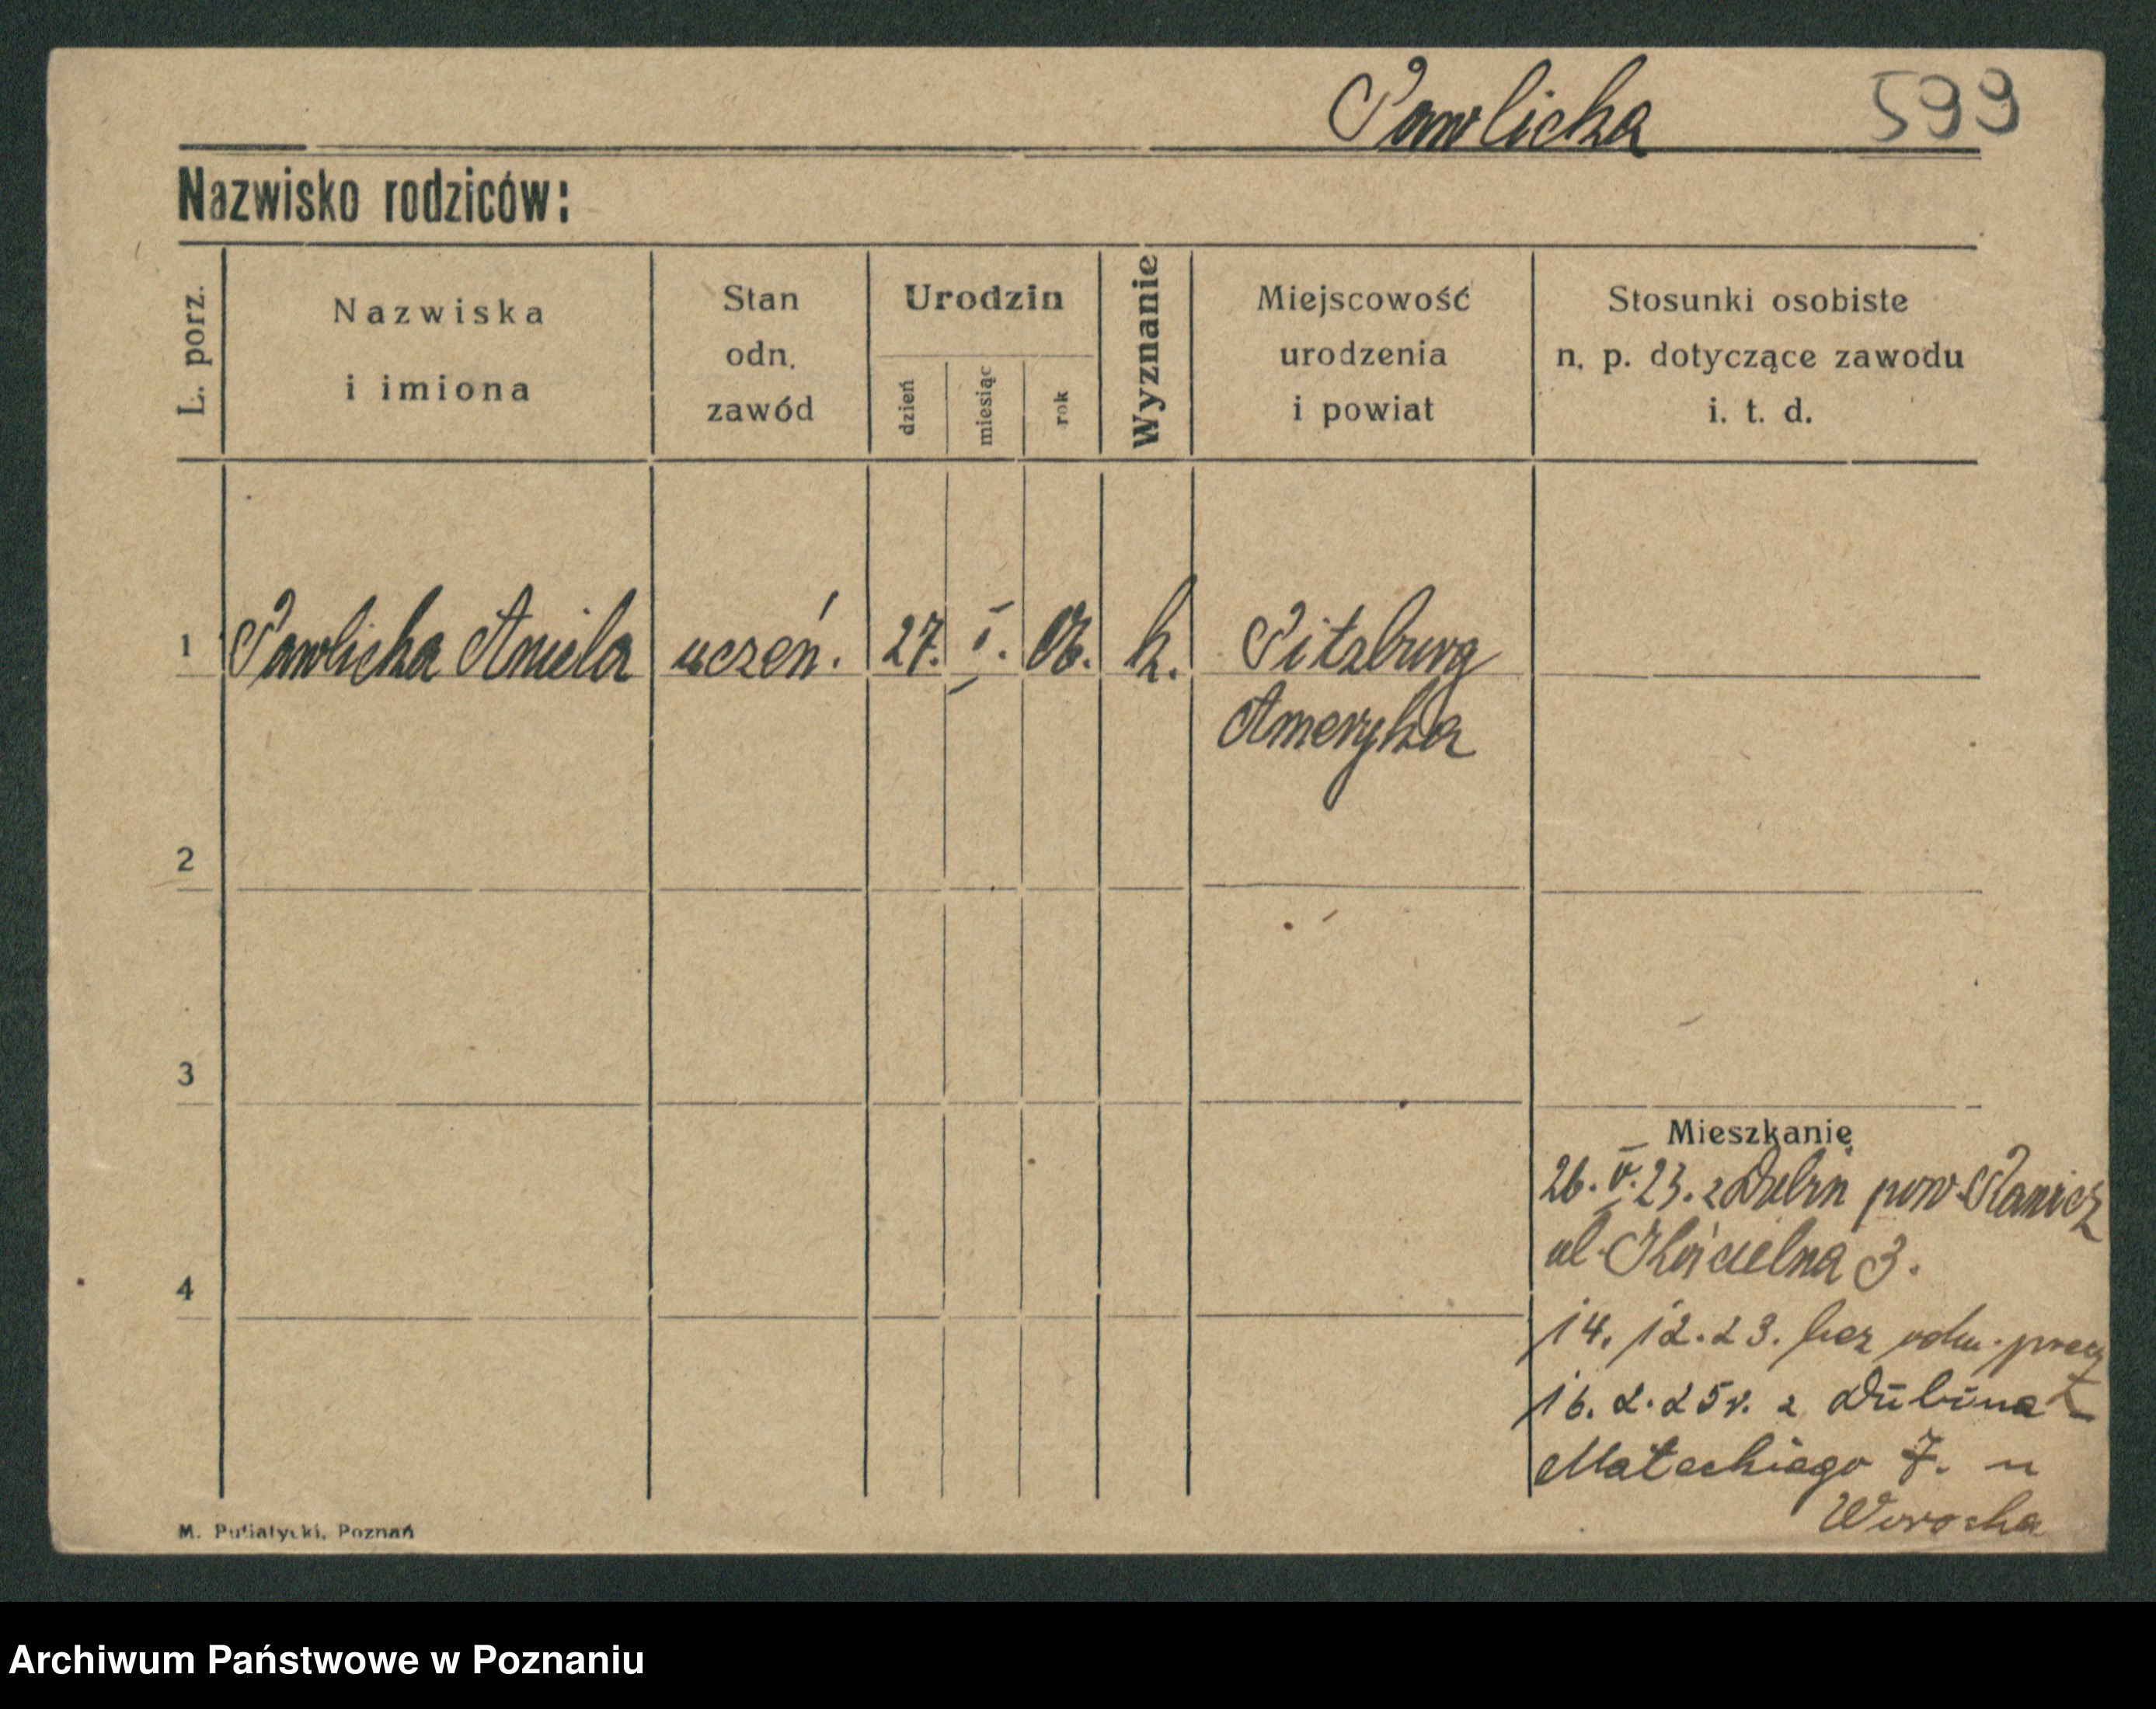 Pawlicka 599
Nazwisko rodziców:
L. porz.
Nazwiska
i imiona
Stan
odn.
zawód
Urodzin
dzień
miesiąc
rok
Wyznanie
Miejscowość
urodzenia
i powiat
Stosunki osobiste
n. p. dotyczące zawodu
i. t. d.
1 Pawlicka Aniela uczeń. 27. I. 06. k. Pitzburg
Ameryka
2
3
4
Mieszkanie
26. V. 23. z Dubin pow. Rawicz
ul. Kościelna 3.
14. 12. 23. bez odm. precz
16. 2. 25 r. z Dubina
Mateckiego 7. u
M. Putiatycki, Poznań
Archiwum Państwowe w Poznaniu